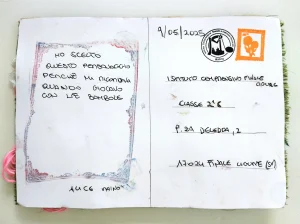 HO SCELTO
QUESTO PERSONAGGIO
PERCHÉ MI RICORDA
QUANDO GIOCAVO
CON LE BAMBOLE
ALICE
9/05/2025
ISTITUTO COMPRENSIVO FINALE
LIGURE
CLASSE 2ª
P.ZA DELEDDA, 2
17024 FINALE LIGURE (SV)